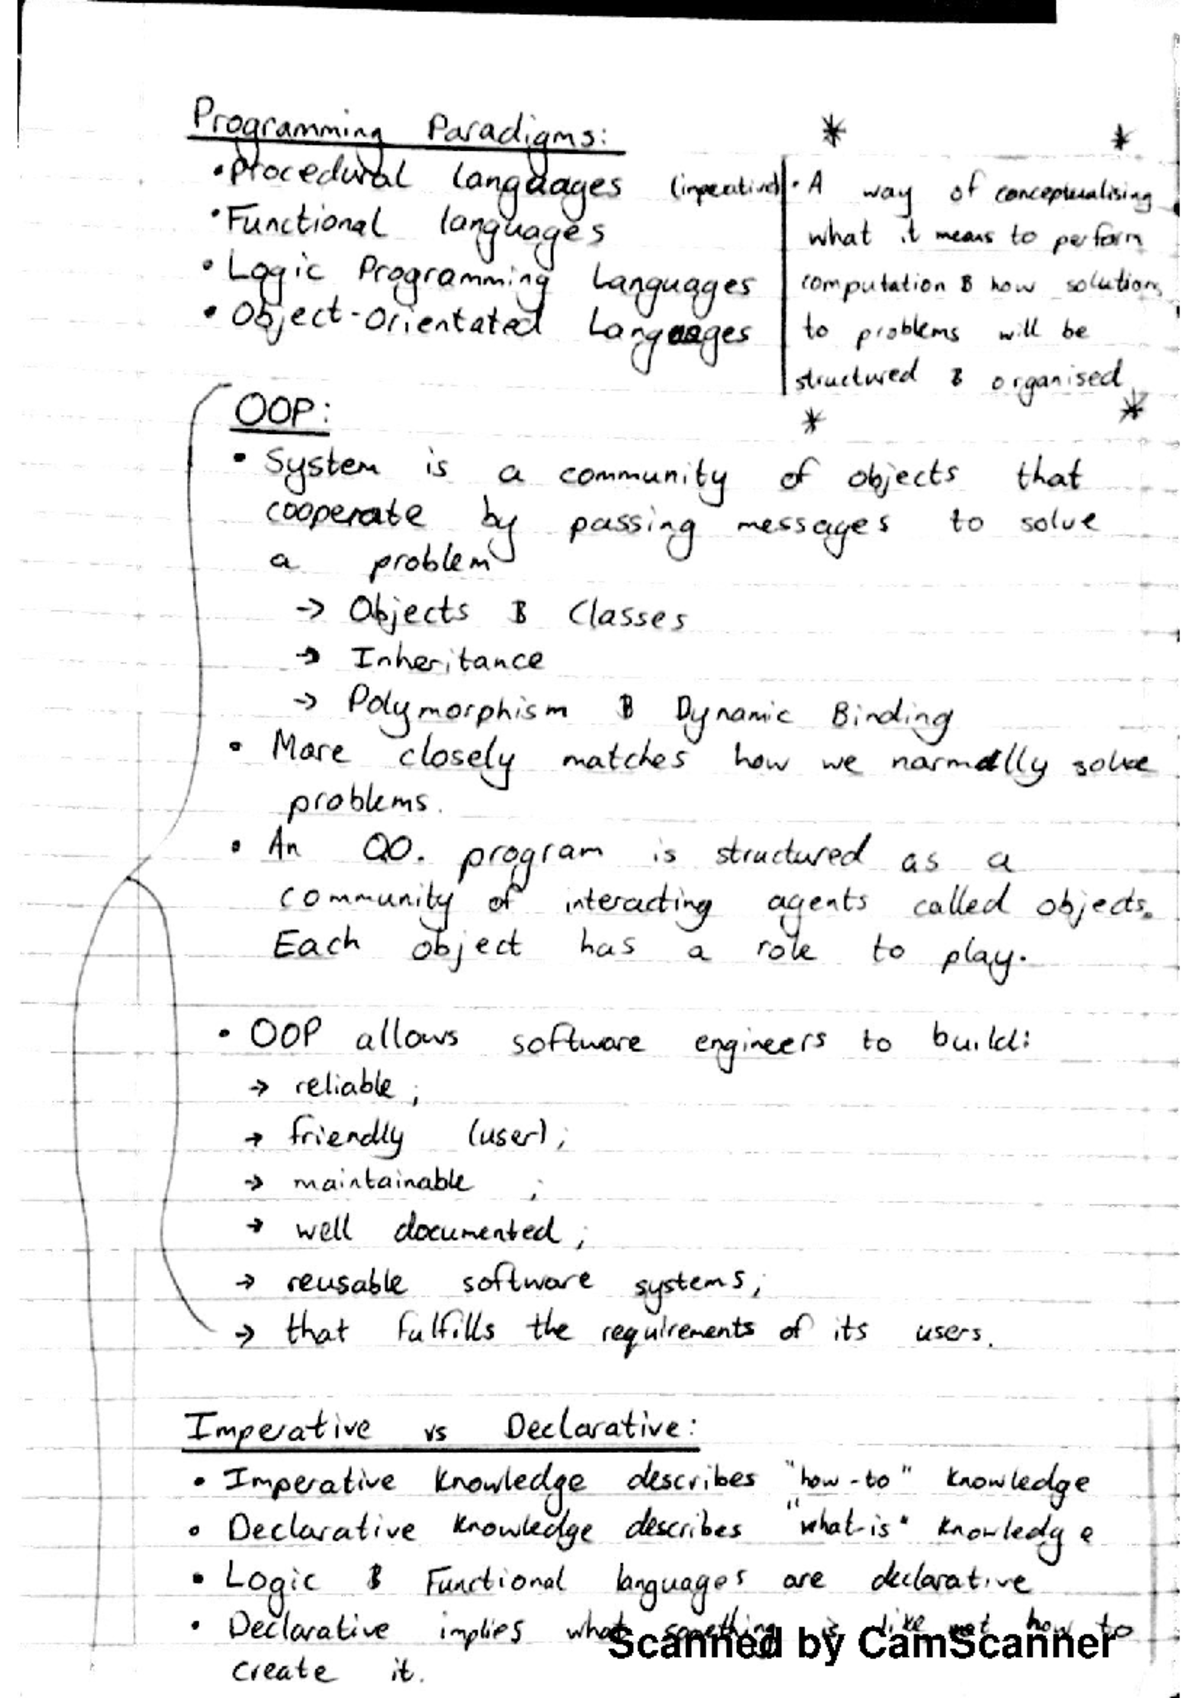 Programming Paradigms:
• Procedural languages (imperative)
• Functional languages
• Logic Programming Languages
• Object-Orientated Languages
* *
• A way of conceptualising
what it means to perform
computation & how solutions
to problems will be
structured & organised
* *
OOP:
• System is a community of objects that
cooperate by passing messages to solve
a problem
-> Objects & Classes
-> Inheritance
-> Polymorphism & Dynamic Binding
• More closely matches how we normally solve
problems.
• An OO. program is structured as a
community of interacting agents called objects.
Each object has a role to play.
• OOP allows software engineers to build:
-> reliable;
-> friendly (user);
-> maintainable ;
-> well documented;
-> reusable software systems;
-> that fulfills the requirements of its users.
Imperative vs Declarative:
• Imperative knowledge describes "how-to" knowledge
• Declarative knowledge describes "what-is" knowledge
• Logic & Functional languages are declarative
• Declarative implies what something is like not how to
create it.
Scanned by CamScanner